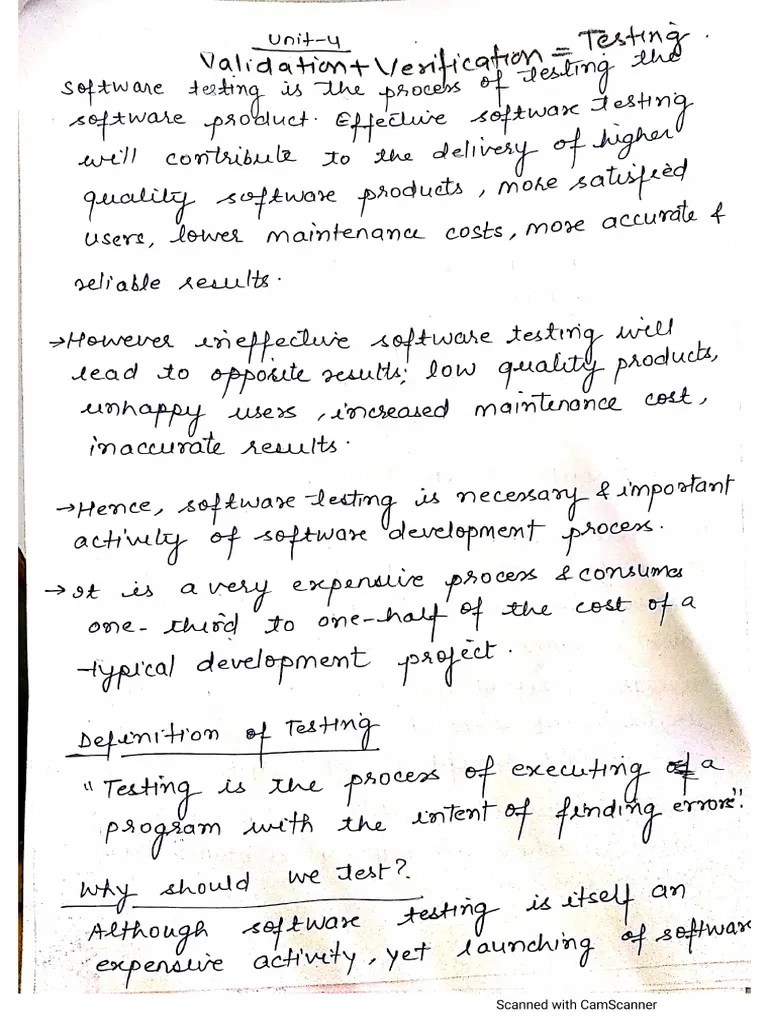 Unit-4
Validation + Verification = Testing.
Software testing is the process of testing the
software product. Effective software testing
will contribute to the delivery of higher
quality software products, more satisfied
users, lower maintenance costs, more accurate &
reliable results.
→However ineffective software testing will
lead to opposite results; low quality products,
unhappy users, increased maintenance cost,
inaccurate results.
→Hence, software testing is necessary & important
activity of software development process.
→It is a very expensive process & consumes
one-third to one-half of the cost of a
typical development project.
Definition of Testing
"Testing is the process of executing a
program with the intent of finding errors".
Why should we test?
Although software testing is itself an
expensive activity, yet launching of software
Scanned with CamScanner